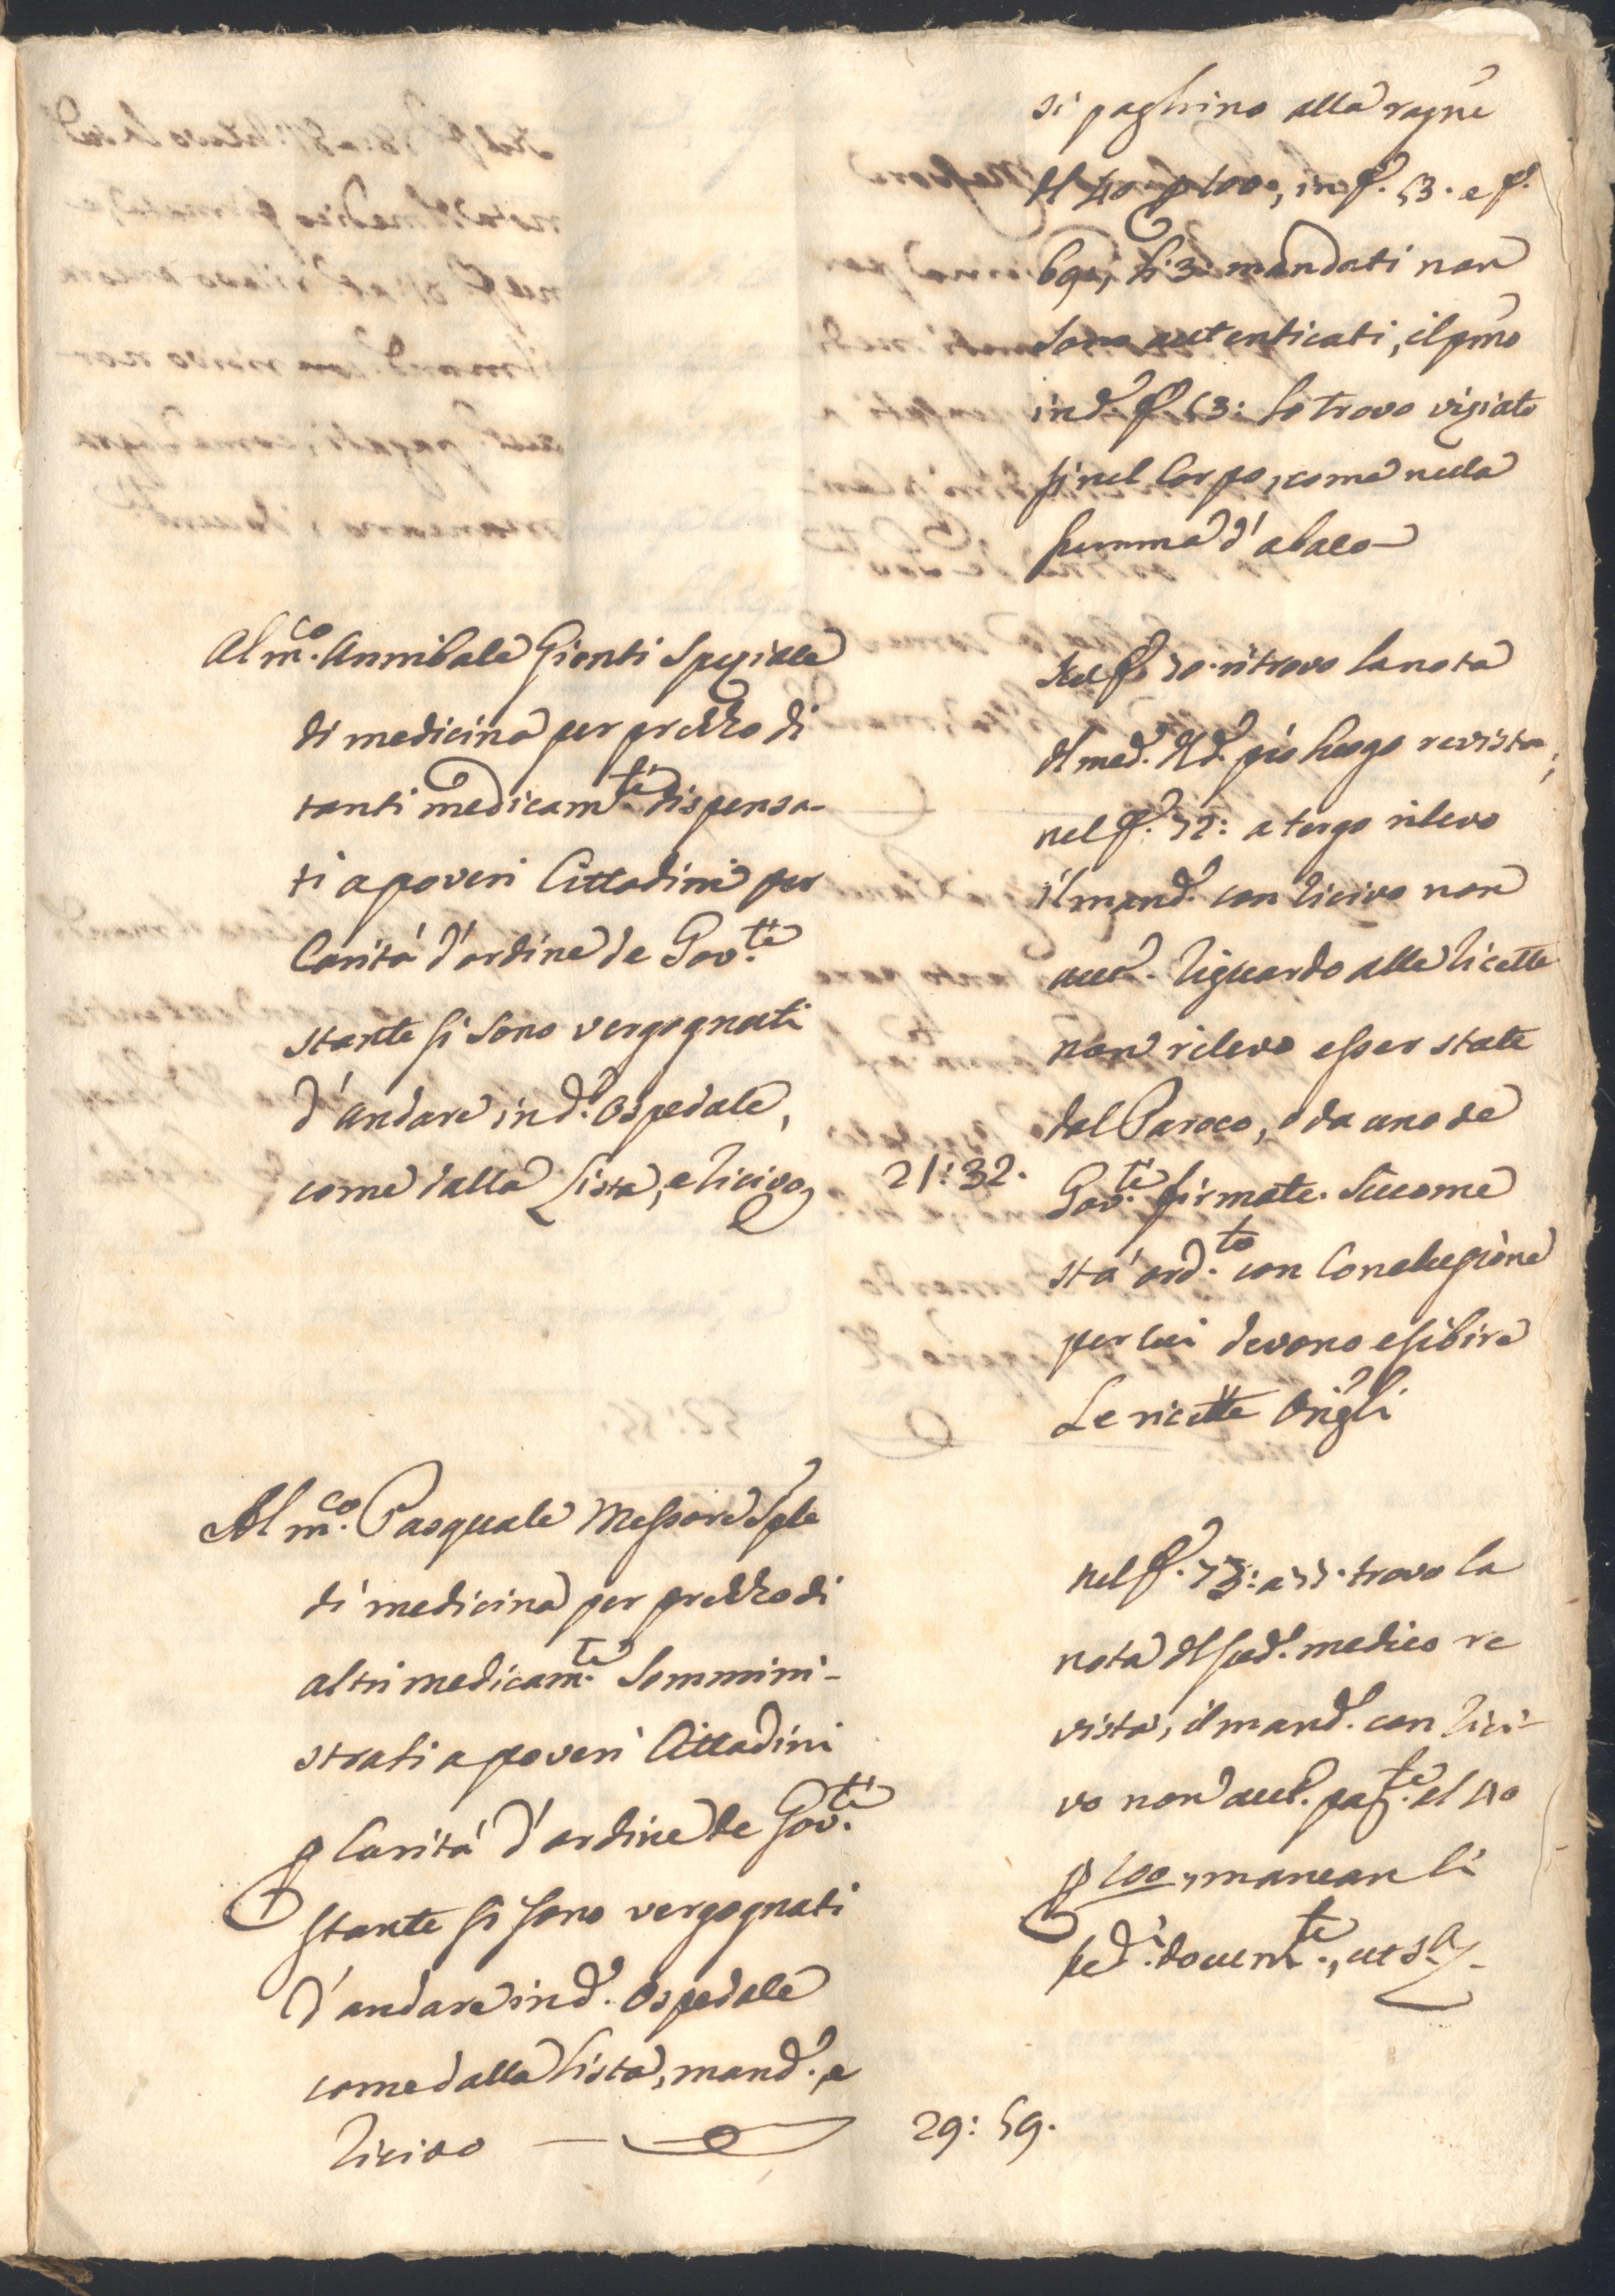 si paghino alla ragne
del 40 p 100, in f. 53. e f.
69, li 3 mandati non
sono autenticati, il pmo
in d. f. 53: lo trovo viziato
si nel Corpo, come nella
summa d'abaco
Al m.co Annibale Gionti Speziale
di medicina per prezzo di
tanti medicam.ti dispensa-
ti a poveri Cittadini per
Carità d'ordine de Gov.ti
stante si sono vergognati
d'andare in d. Ospedale,
come dalla Lista, e ricivo
21:32.
Nel f. 70. ritrovo la nota
del med. del d. pio luogo revista;
nel f. 72: a tergo rilevo
il mand. con ricivo non
aut. Riguardo alle ricette
non rilevo esser state
dal Paroco, o da uno de
Gov.ti firmate. Siccome
stà ord.to con Conclusione
per cui devono esibire
Le ricette Origli
Al m.co Pasquale Messore Sple
di medicina per prezzo di
altri medicam.ti sommini-
strati a poveri Cittadini
p Carità d'ordine de Gov.ti
stante si sono vergognati
d'andare in d. Ospedale
come dalla lista, mand., e
ricivo
29:59.
nel f. 73: a 77. trovo la
nota del sud. medico re
vista, il mand. con rici-
vo non aut. pag.te al 40
p 100, mancan li
sud.i docum.ti, ut s.a